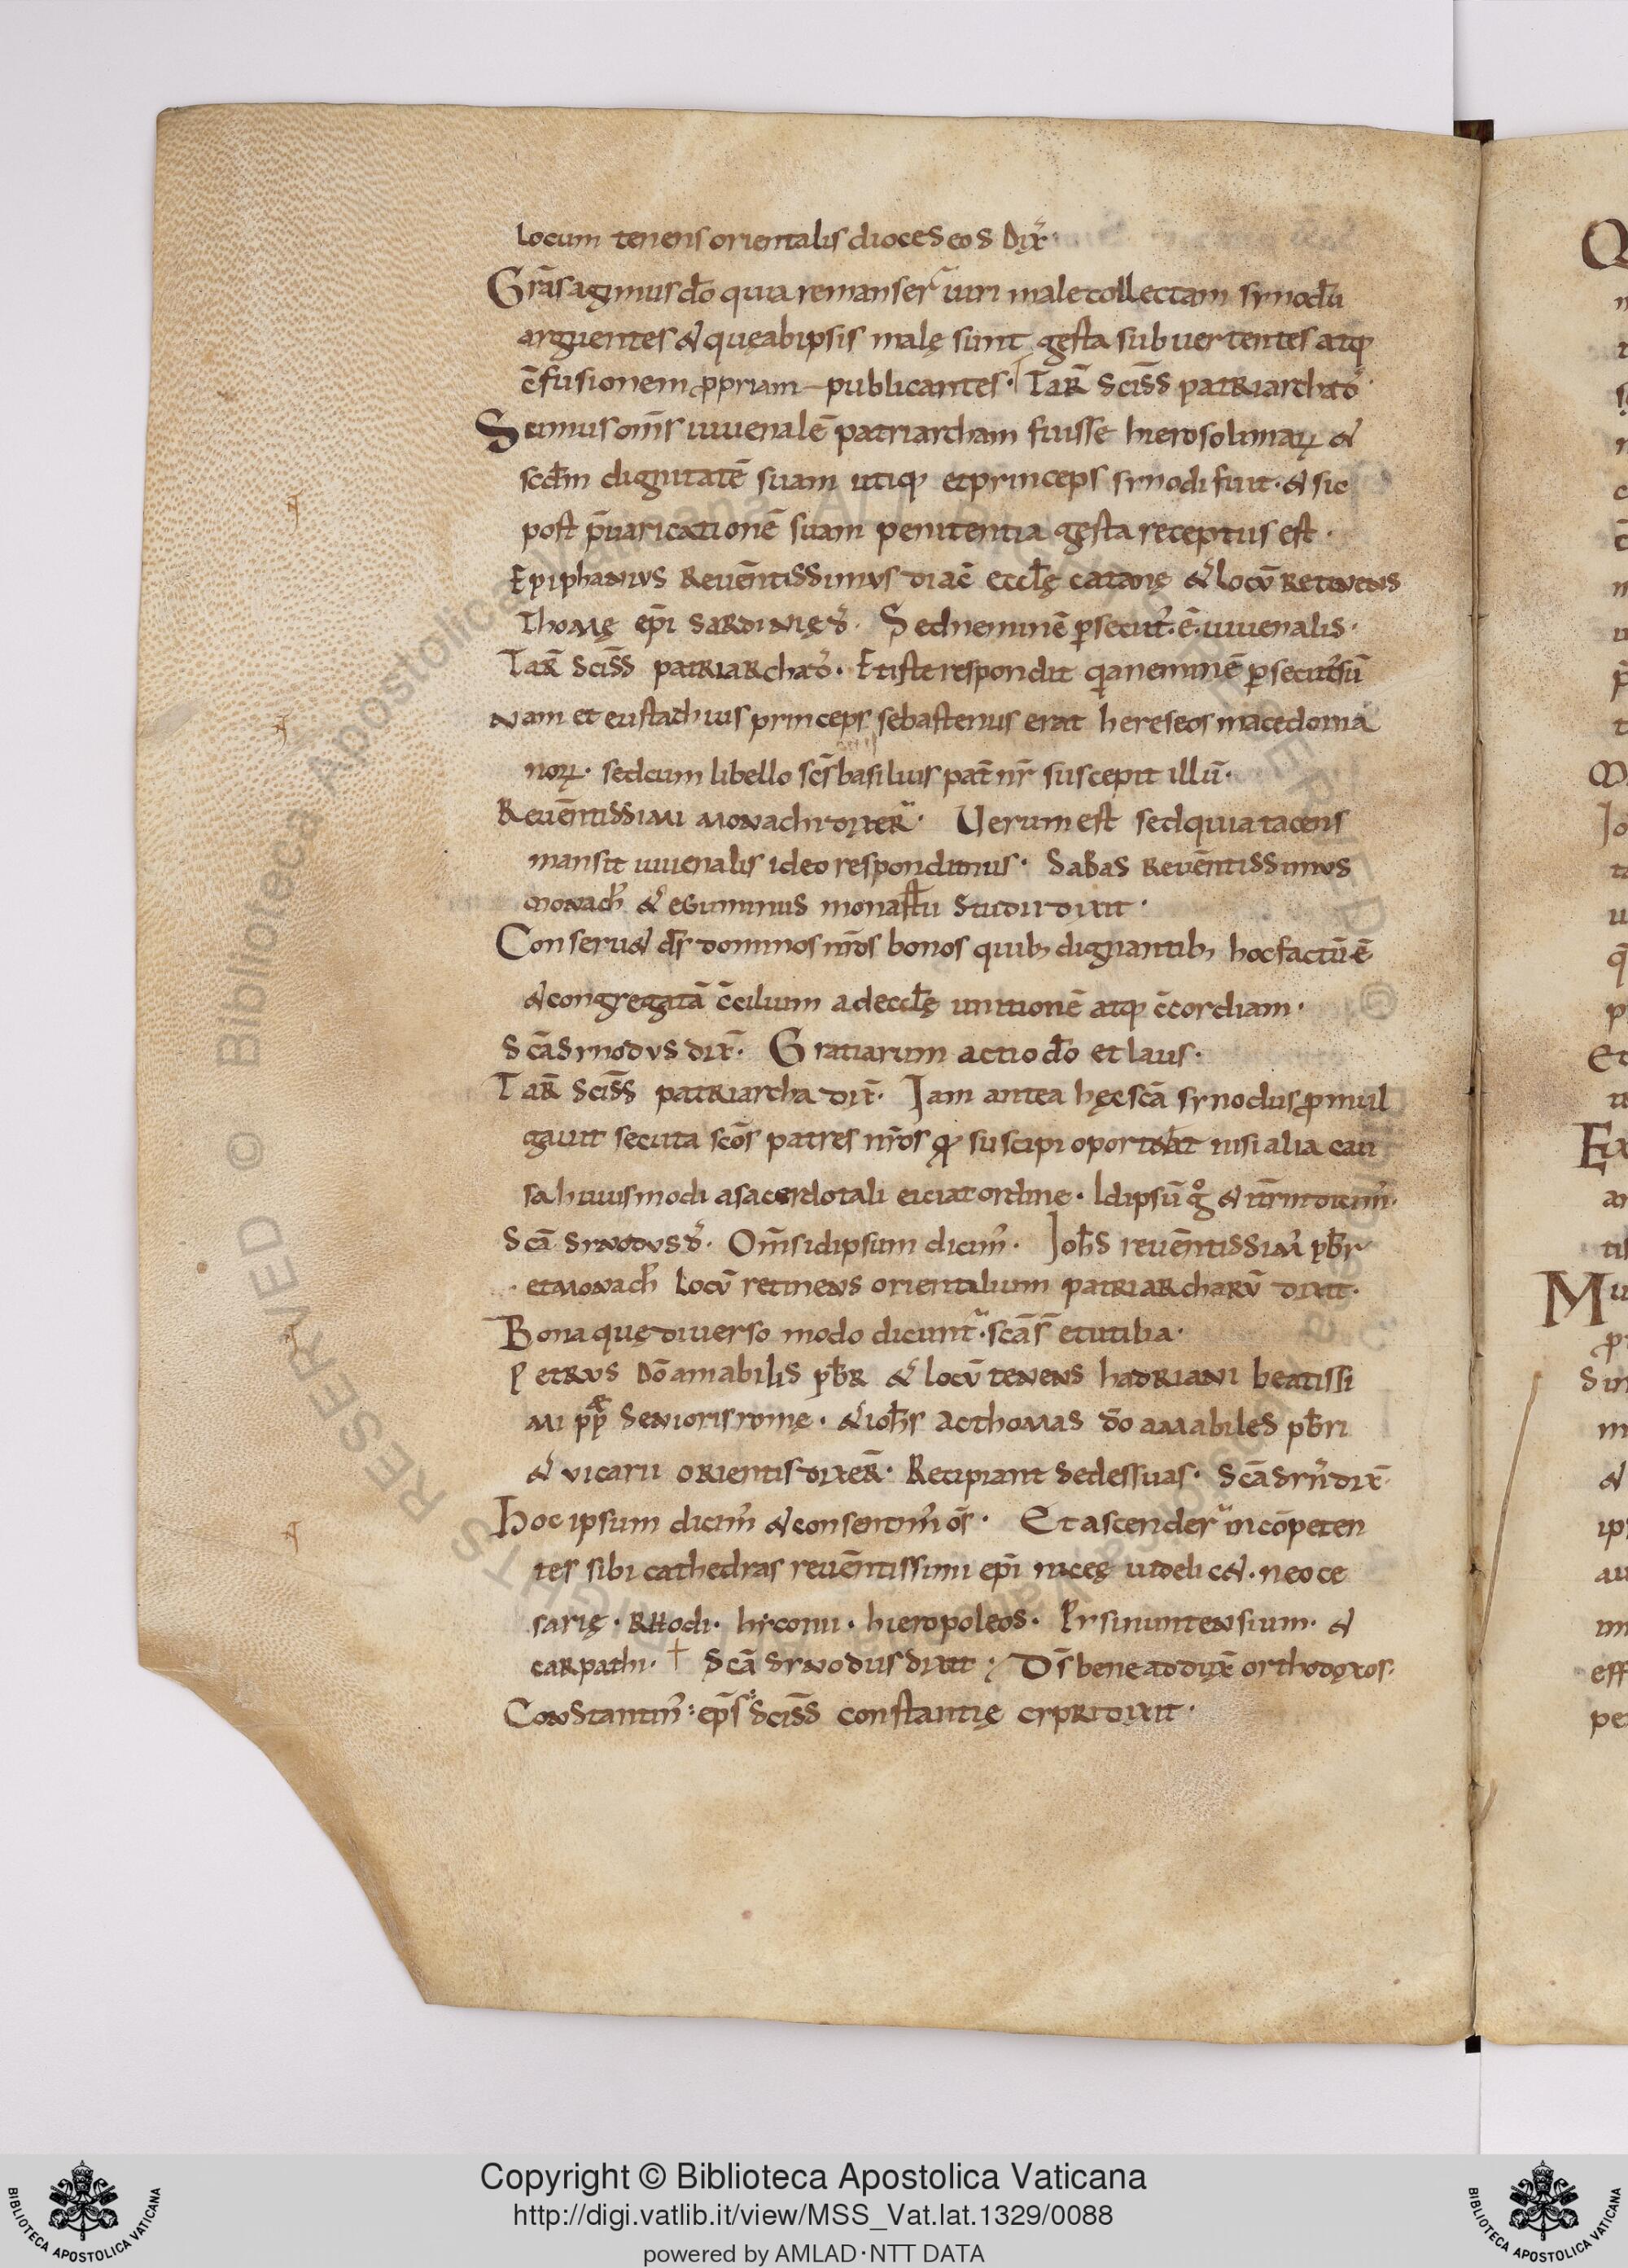 locum tenens orientalis dioceseos dix̃
Grãs agimus dõ quia remanser̃ uiri male collectam synodũ
arguentes & quę ab ipsis malę sunt gesta subuertentes atq;
c̃fusionem ꝓpriam publicantes. Tar̃ sciss̃ patriarcha dˀ
Scimus om̃s iuuenalẽ patriarcham fuisse hierosolimaꝝ &
scd̃m dignitatẽ suam utiq; et princeps synodi fuit. & sic
post p̃uaricationẽ suam penitentia gesta receptus est.
Epiphanus reuẽntissimus diac̃ eccl̃ę catanę & locũ retinens
Thomę ep̃i sardinię dˀ. Sed neminẽ ꝑsecutˀ.ẽ. iuuenalis.
Tar̃ sciss̃ patriarcha dˀ. Et iste respondit q̃a neminẽ ꝑsecutˀ sũ
Nam et eustathius princeps sebastenus erat hereseos macedonia
noꝝ. sed cum libello scs̃ basilius pat̃ nr̃ suscepit illũ.
Reuẽntissimi monachi dixer̃. Uerum est sed quia tacens
mansit iuuenalis ideo respondimus. Sabas reuẽntissimus
monach̃ & eguminus monast̃ii studii dixit.
Conseru& ds̃ dominos nr̃os bonos quib; dignantib; hoc factũ.ẽ.
& congregatã c̃cilium ad eccl̃ę unitionẽ atq; c̃cordiam.
Scã synodus dix̃. Gratiarum actio dõ et laus.
Tar̃ sciss̃ patriarcha dix̃. Iam antea hęc scã synodus ꝓmul
gauit secuta scõs patres nr̃os q; suscipi oporteat nisi alia cau
sa huiusmodi a sacerdotali eiciat ordine. Idipsũ gͦ & it̃m dicimˀ.
Scã synodus dˀ. Om̃s idipsum dicimˀ. Ioh̃s reuẽntissimˀ pb̃r
et monach̃ locũ retinens orientalium patriarcharũ dixit.
Bona quę diuerso modo dicunt̃. scã s̃ et utilia.
Petrus dõ amabilis pb̃r & locũ tenens hadriani beatissi
mi pp̃ę senioris romę. & ioh̃s ac thomas dõ amabiles pb̃ri
& uicarii orientis dixer̃. Recipiant sedes suas. Scã syñ dix̃.
Hoc ipsum dicimˀ & consentimˀ om̃s. Et ascender̃ in cõpeten
tes sibi cathedras reuẽntissimi ep̃i nicęę uidelic&. neoce
sarię. Rhodi. hyconii. hieropoleos. Pysinuntensium. &
carpathi. † Scã synodus dixit. Ds̃ bene addux̃ orthodoxos.
Constantinˀ: ep̃s sciss̃ constantię cypri dixit.
Copyright © Biblioteca Apostolica Vaticana
http://digi.vatlib.it/view/MSS_Vat.lat.1329/0088
powered by AMLAD·NTT DATA